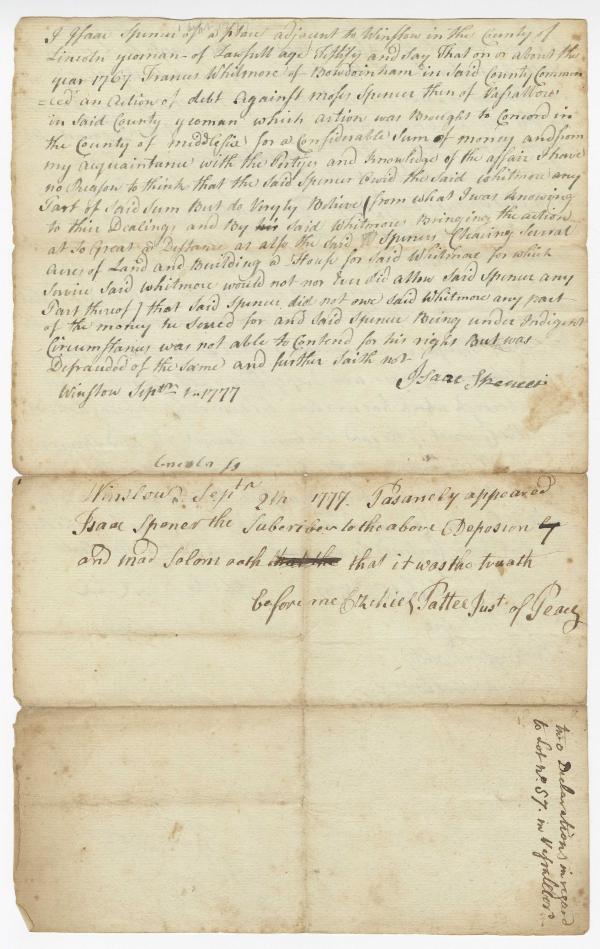 I Isaac Spencer of a place adjacent to Winslow in the County of
Lincoln yeoman - of Lawfull age Testify and Say That on or about the
year 1767 Francis Whitmore of Bowdoinham in Said County Commen
=ced an action of debt Against Moses Spencer then of Vassalboro
in Said County yeoman which action was Brought to Concord in
the County of middlesix for a Considerable Sum of money and from
my acquaintance with the Partyes and Knowledge of the affair I have
no Reason to think that the said Spencer owid the said Whitmore any
Part of Said Sum But do Veryly Believe (from what I was Knowing
to their Dealings and By his said Whitmores Bringing the action
at So Great a Distance as also the Said Spencers Clearing Several
acres of Land and Building a House for Said Whitmore for which
Service Said Whitmore would not nor Ever did allow Said Spencer any
Part thereof) that Said Spencer did not owe Said Whitmore any part
of the money he Sewed for and Said Spencer Being under Indigent
Circumstances was not able to Contend for his right But was
Defrauded of the Same and further Saith not
Isaac Spencer
Winslow Septm 1st 1777
Lincoln ss
Winslow Septr 2th 1777. Pasanely appeared
Isaac Spener the Subcriber to the above Deposion
and mad Solom oath that the that it was the truath
before me Ezekiel Pattee Just of Peace
two Declarations in regard
to Lot no. 57. in Vassalboro